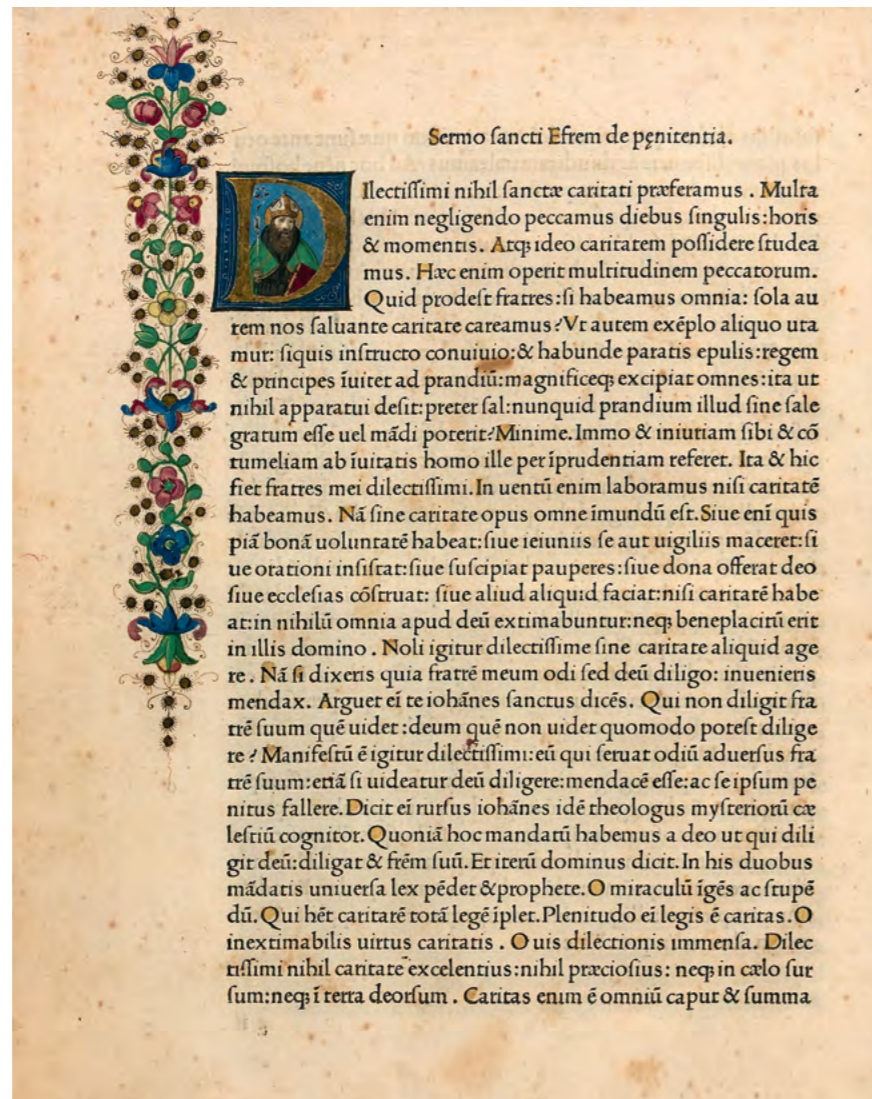 Sermo ſancti Efrem de pęnitentia.
DIlectiſſimi nihil ſanctæ caritati præferamus . Multa
enim negligendo peccamus diebus ſingulis:horis
& momentis. Atqꝫ ideo caritatem poſſidere ſtudea
mus. Hæc enim operit multitudinem peccatorum.
Quid prodeſt fratres:ſi habeamus omnia: ſola au
tem nos ſaluante caritate careamus?Vt autem exēplo aliquo uta
mur: ſiquis inſtructo conuiuio:& habunde paratis epulis:regem
& principes īuitet ad prandiū:magnificeqꝫ excipiat omnes:ita ut
nihil apparatui deſit:preter ſal:nunquid prandium illud ſine ſale
gratum eſſe uel mādi poterit?Minime.Immo & iniuriam ſibi & cō
tumeliam ab īuitatis homo ille per īprudentiam referet. Ita & hic
fiet fratres mei dilectiſſimi.In uentū enim laboramus niſi caritatē
habeamus. Nā ſine caritate opus omne īmundū eſt.Siue enī quis
piā bonā uoluntatē habeat:ſiue ieiuniis ſe aut uigiliis maceret:ſi
ue orationi inſiſtat:ſiue ſuſcipiat pauperes:ſiue dona offerat deo
ſiue eccleſias cōſtruat: ſiue aliud aliquid faciat:niſi caritatē habe
at:in nihilū omnia apud deū extimabuntur:neqꝫ beneplacitū erit
in illis domino . Noli igitur dilectiſſime ſine caritate aliquid age
re . Nā ſi dixeris quia fratrē meum odi ſed deū diligo: inuenieris
mendax. Arguet eī te iohānes ſanctus dicēs. Qui non diligit fra
trē ſuum quē uidet:deum quē non uidet quomodo poteſt dilige
re ? Manifeſtū ē igitur dilectiſſimi:eū qui ſeruat odiū aduerſus fra
trē ſuum:etiā ſi uideatur deū diligere:mendacē eſſe:ac ſe ipſum pe
nitus fallere.Dicit eī rurſus iohānes idē theologus myſteriorū cæ
leſtiū cognitor.Quoniā hoc mandatū habemus a deo ut qui dili
git deū:diligat & frēm ſuū.Et iterū dominus dicit.In his duobus
mādatis uniuerſa lex pēdet &prophete.O miraculū īgēs ac ſtupē
dū.Qui hēt caritatē totā legē īplet.Plenitudo eī legis ē caritas.O
inextimabilis uirtus caritatis . O uis dilectionis immenſa. Dilec
tiſſimi nihil caritate excelentius:nihil præcioſius: neqꝫ in cælo ſur
ſum:neqꝫ ī terra deorſum . Caritas enim ē omniū caput & ſumma